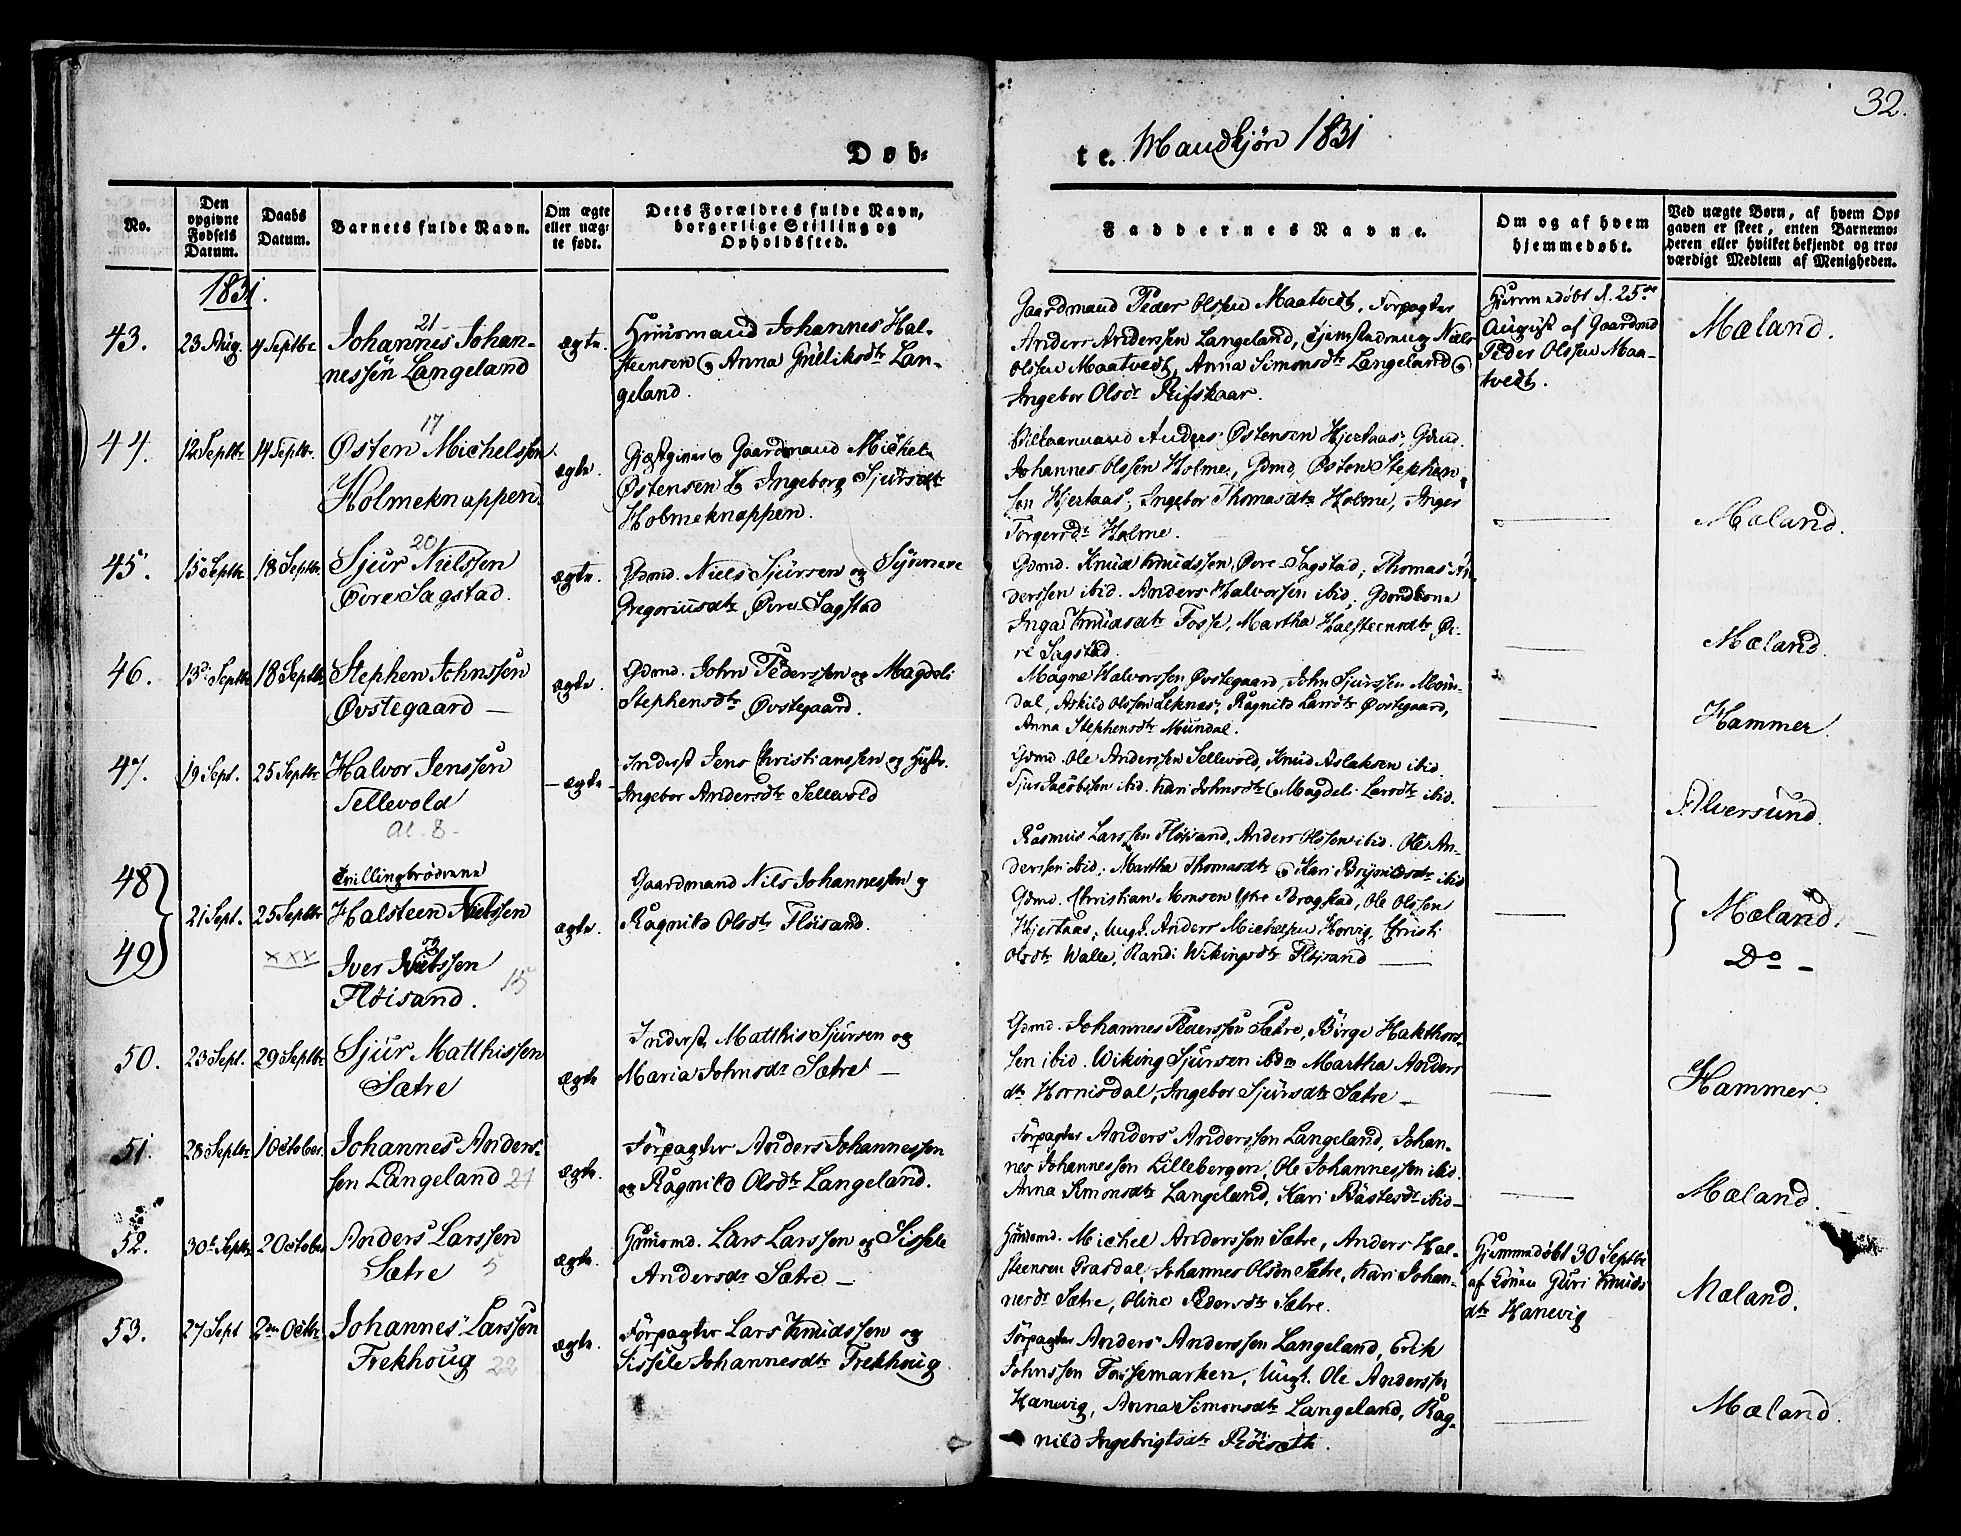 32.
Døb-
te. Mandkjøn 1831
No.
Den
opgivne
Fødsels
Datum.
Daabs
Datum.
Barnets fulde Navn.
Om ægte
eller uæg-
te født.
Dets Forældres fulde Navn,
borgerlige Stilling og
Opholdssted.
Faddernes Navne.
Om og af hvem
hjemmedøbt.
Ved uægte Børn, af hvem Op-
gaven er skeet, enten Barnemo-
deren eller hvilket bekjendt og tro-
værdigt Medlem af Menigheden.
1831.
43.
23 Aug.
4 Septbr
21
Johannes Johan-
nessen Langeland
ægte.
Huusmand Johannes Hal-
steensen og Anna Guliksdtr Lan-
geland.
Gaardmand Peder Olsen Maatvedt, Forpagter
Anders Anderssen Langeland, Niels
Olssen Maatvedt, Anna Simonsdtr Langeland og
Ingebor Olsdtr Rifskaar.
Hjemmedøbt d. 25de
August af Gaardmd
Peder Olssen Maa-
tvedt.
Mæland.
44.
12 Septbr
14 Septbr.
17
Østen Michelssen
Holmeknappen.
ægte.
Gjæstgiver og Gaardmand Michel
Østensen & Ingeborg Sjursdtr
Holmeknappen.
Anders Østensen Hjertaas, Gdmd.
Johannes Olssen Holme, Gdmd. Østen Stephen-
sen Hjertaas, Ingebor Thomasdtr Holme, Inger
Torgersdr Holme.
Mæland.
45.
15 Septbr
18 Septbr.
20
Sjur Nielssen
Øvre Sagstad.
ægte.
Gdmd. Niels Sjursen og Synneve
Gregoriusdtr Øvre Sagstad
Gdmd. Knud Knudssen Øvre Sagstad, Thomas An-
derssen ibid. Anders Halvorsen ibid, Gdmdkone
Inga Knudsdtr Fosse, Martha Halsteensdtr Øv-
re Sagstad.
Mæland.
46.
13de Septbr
18 Septbr
Stephen Johnssen
Øvstegaard —
ægte.
Gdmd. John Pederssen og Magdeli
Stephensdtr Øvstegaard.
Magne Halvorssen Øvstegaard, John Sjurssen Mun-
dal, Askild Olssen Leknes, Ragnild Larsdtr Øvstegaard,
Anna Stephensdtr Mundal.
Hammer.
47.
19 Sept.
25 Septbr
Halvor Jenssen
Sellevold
Al. 8 -
— ægte —
Inderst Jens Christianssen og Hustr.
Ingebor Andersdtr Sellevold
Gdmd. Ole Anderssen Sellevold, Knud Aslaksen ibid.
Sjur Jacobssen ibid. Kari Johnsdtr & Magdeli Larsdtr ibid.
Alversund.
48
49
21 Sept.
25 Septbr
xxx
Tvillingbrødrene
Halsteen Nielssen
Iver Nielssen
Fløisand. 15
ægte.
Gaardmand Nils Johannessen og
Ragnild Olsdtr Fløisand.
Rasmus Larssen Fløisand, Anders Olssen ibid. Ole An-
derssen ibid; Martha Thomasdtr & Kari Brynildsdtr ibid
Gdmd. Christian Monsen Ytre Bragstad, Ole Olssen
Hjertaas, Ungk. Anders Michelsen Horvig, Christi
Olsdtr Walle, Randi Wikingsdtr Fløisand —
Mæland.
Do -
50.
23 Sept.
29 Septbr
Sjur Matthissen
Sætre
ægte
Inderst, Matthis Sjursen og
Maria Johnsdtr Sætre —
Gdmd. Johannes Pederssen Sætre, Børge Hakthors-
sen ibid. Wiking Sjursen ibdm Martha Anders
dtr Hornisdal, Ingebor Sjursdtr Sætre —
Hammer.
51.
28 Septbr
1 October.
Johannes Anders-
sen Langeland 24
ægte.
Forpagter Anders Johannessen
og Ragnild Olsdtr Langeland.
Forpagter Anders Anderssen Langeland, Johan-
nes Johannessen Lillebergen, Ole Johannessen ibid.
Anna Simonsdtr Langeland, Kari ibid —
Mæland.
52.
30te Septbr
2 October
Anders Larssen
Sætre 5
ægte.
Huusmd. Lars Larssen og Sissele
Andersdtr Sætre —
Huusmd. Michel Anderssen Sætre, Anders Hal-
steensen Grasdal, Johannes Olsen Sætre, Kari Johan-
nesdr Sætre, Oline Pedersdtr Sætre.
Hjemmedøbt 30 Septbr
af Konen Guri Knuds
dtr Hanevig
Mæland.
53.
27 Sept
2den Octbr.
Johannes Larssen
Frekhoug 22
ægte.
Forpagter Lars Knudssen og
Sissele Johannesdtr Frekhoug.
Forpagter Anders Anderssen Langeland, Erik
Johnssen Fossemarken, Ungk. Ole Anderssen
Hanevig, Anna Simonsdtr Langeland, Rag-
nild Ingebrigtsdtr Røisæth.
Mæland.